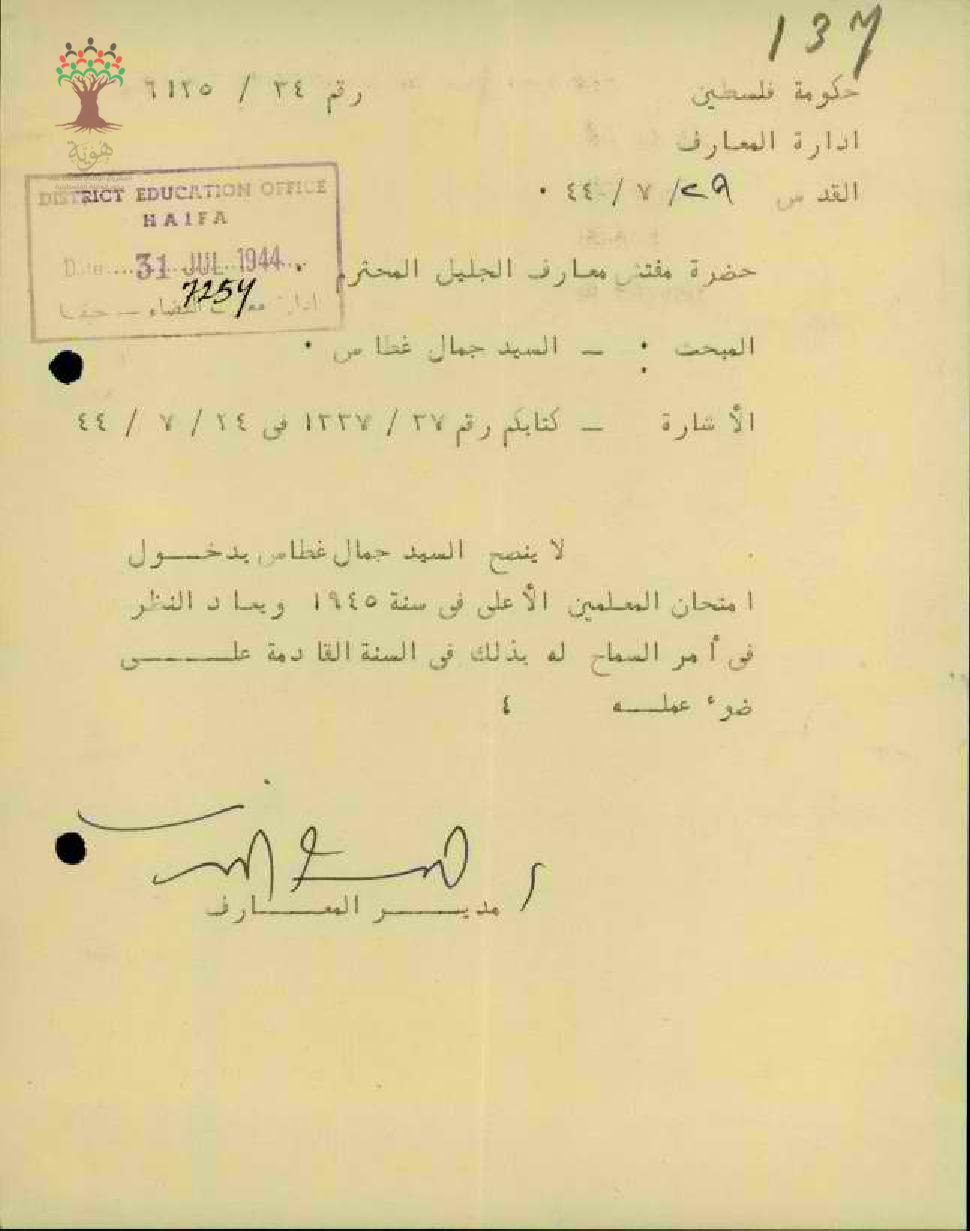 137
حكومة فلسطين
رقم ٣٤ / ٦١٢٥
ادارة المعارف
القدس ٢٩/ ٧ / ٤٤ ٠
هوية
DISTRICT EDUCATION OFFICE
HAIFA
Date 31 JUL 1944
7254
ادارة معارف القضاء – حيفا
حضرة مفتش معارف الجليل المحترم ٠
المبحث : – السيد جمال غطاس ٠
الأشارة – كتابكم رقم ٢٧ / ١٢٣٧ في ٢٤ / ٧ / ٤٤
لا ينصح السيد جمال غطاس بدخول
امتحان المعلمين الأعلى في سنة ١٩٤٥ ويعاد النظر
في أمر السماح له بذلك في السنة القادمة علـــى
ضوء عمله ٤
مديـــر المعـــارف